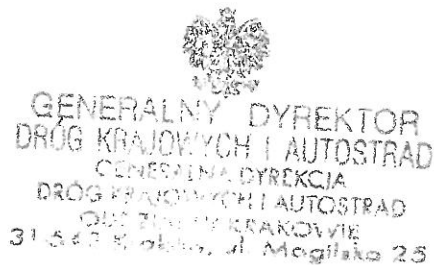 GENERALNY DYREKTOR
DRÓG KRAJOWYCH I AUTOSTRAD
GENERALNA DYREKCJA
DRÓG KRAJOWYCH I AUTOSTRAD
ODDZIAŁ W KRAKOWIE
Kraków, ul. Mogilska 25